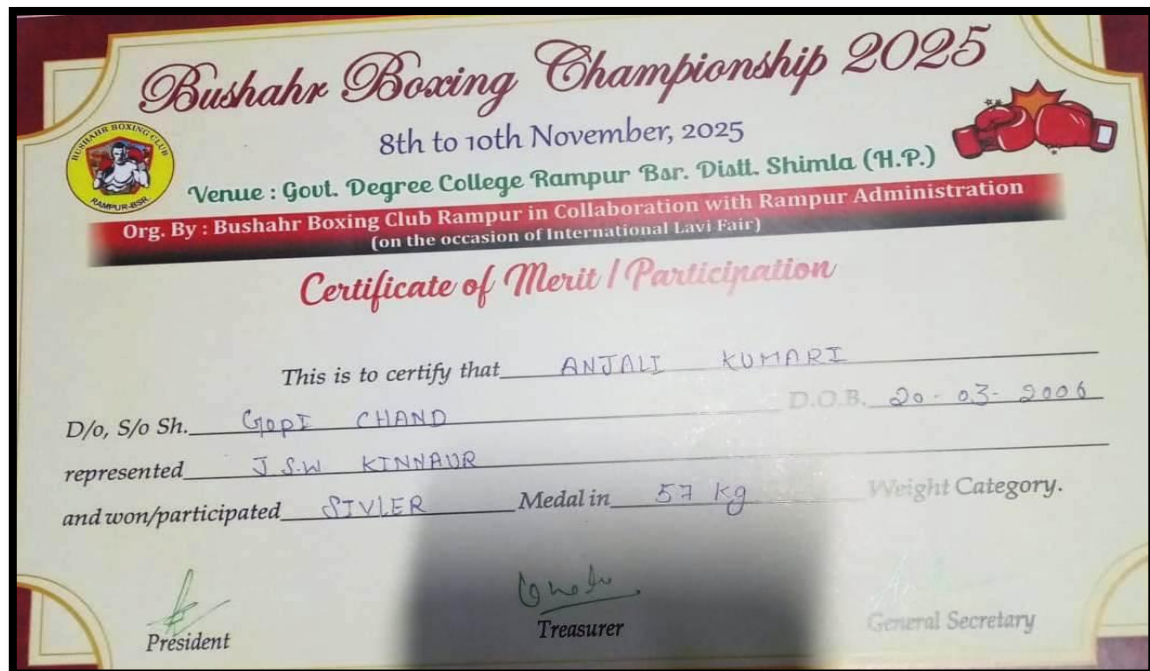 Bushahr Boxing Championship 2025
8th to 10th November, 2025
BUSHAHR BOXING CLUB
RAMPUR-BSR.
Venue : Govt. Degree College Rampur Bsr. Distt. Shimla (H.P.)
Org. By : Bushahr Boxing Club Rampur in Collaboration with Rampur Administration
(on the occasion of International Lavi Fair)
Certificate of Merit / Participation
This is to certify that ANJALI KUMARI
D/o, S/o Sh. GOPI CHAND D.O.B. 20-03-2006
represented J.S.W KINNAUR
and won/participated SIVLER Medal in 57 Kg Weight Category.
President
Treasurer
General Secretary